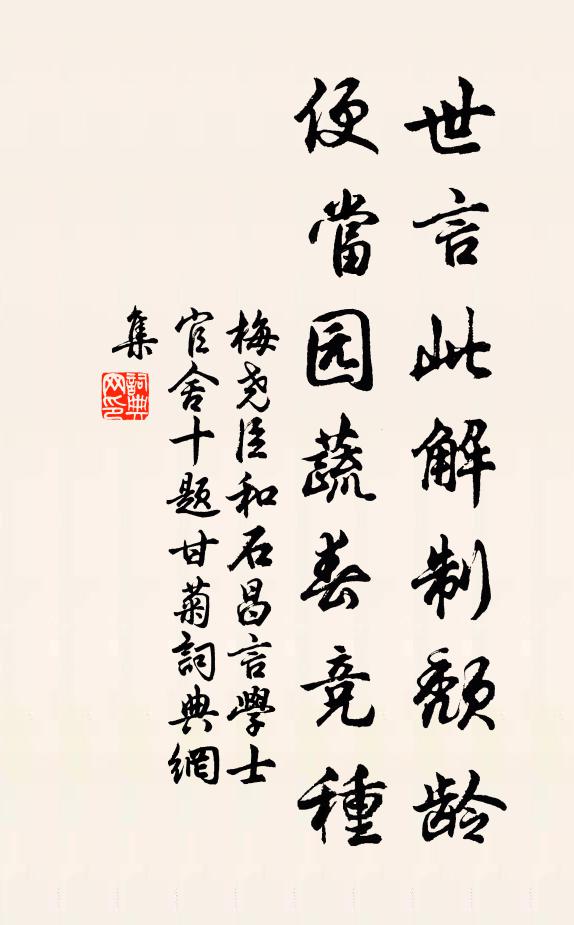 世言此解制颓龄
便當园蔬春竞種
梅尧臣和石昌言學士
官舍十题甘菊詞典網
集
詞典
网印